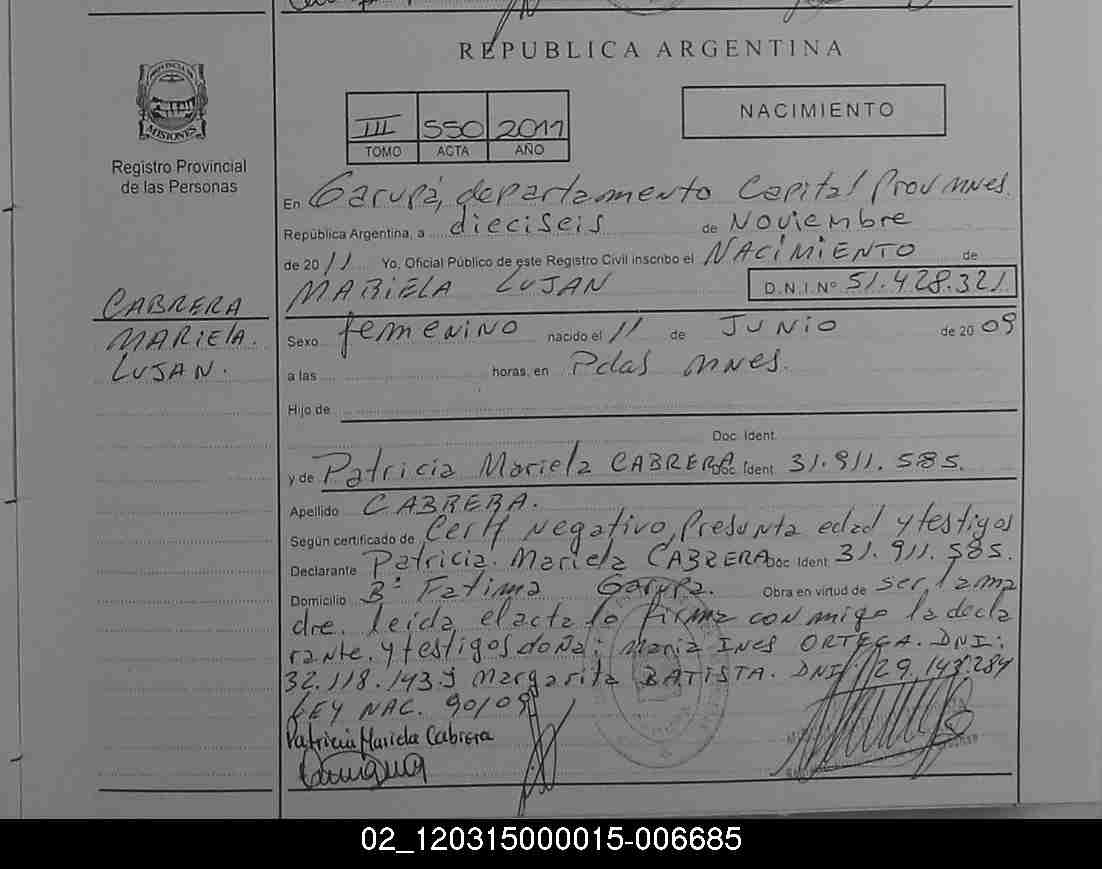 REPUBLICA ARGENTINA
PROVINCIA DE
MISIONES
Registro Provincial
de las Personas
III 550 2011
TOMO ACTA AÑO
NACIMIENTO
En Garupá, departamento Capital Prov mnes.
República Argentina, a dieciseis de Noviembre
de 2011 Yo, Oficial Público de este Registro Civil inscribo el NACIMIENTO de
MARIELA LUJAN D.N.I.Nº 51.428.321
CABRERA
MARIELA.
LUJAN.
Sexo femenino nacido el 11 de JUNIO de 2009
a las horas, en Pdas mnes.
Hijo de
Doc. Ident.
y de Patricia Mariela CABRERA Doc. Ident. 31.911.585.
Apellido CABRERA.
Según certificado de Cert Negativo, Presunta edad y testigos
Declarante Patricia. Mariela CABRERA Doc. Ident. 31.911.585.
Domicilio Bº Fatima Garupa. Obra en virtud de ser la ma
dre. leida el acta lo firma conmigo la decla
rante. y testigos doña: Maria INES ORTEGA. DNI:
32.118.143 y Margarita BATISTA. DNI: 29.143.284
LEY NAC. 90/09
Patricia Mariela Cabrera
02_120315000015-006685